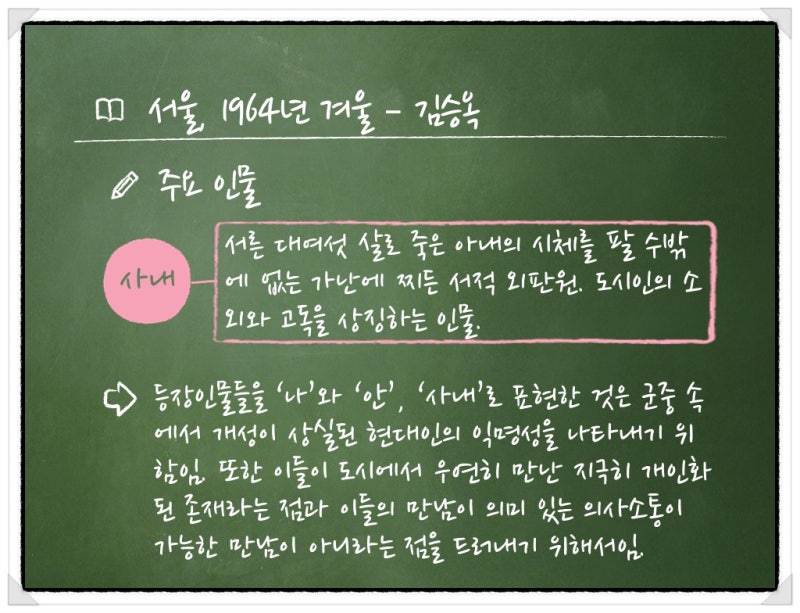 서울, 1964년 겨울 - 김승옥
주요 인물
사내
서른 대여섯 살로 죽은 아내의 시체를 팔 수밖
에 없는 가난에 찌든 서적 외판원. 도시인의 소
외와 고독을 상징하는 인물.
등장인물들을 '나'와 '안', '사내'로 표현한 것은 군중 속
에서 개성이 상실된 현대인의 익명성을 나타내기 위
함임. 또한 이들이 도시에서 우연히 만난 지극히 개인화
된 존재라는 점과 이들의 만남이 의미 있는 의사소통이
가능한 만남이 아니라는 점을 드러내기 위해서임.